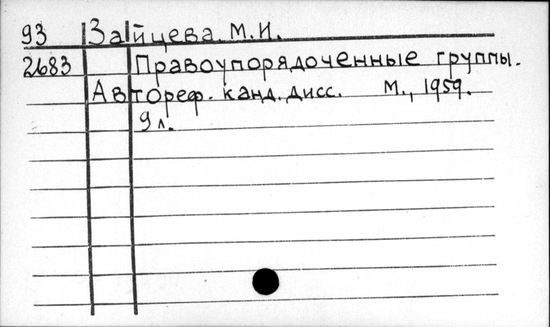 93 Зайцева М.И.
2683 Правоупорядоченные группы.
Автореф. канд. дисс. М., 1959.
9 л.